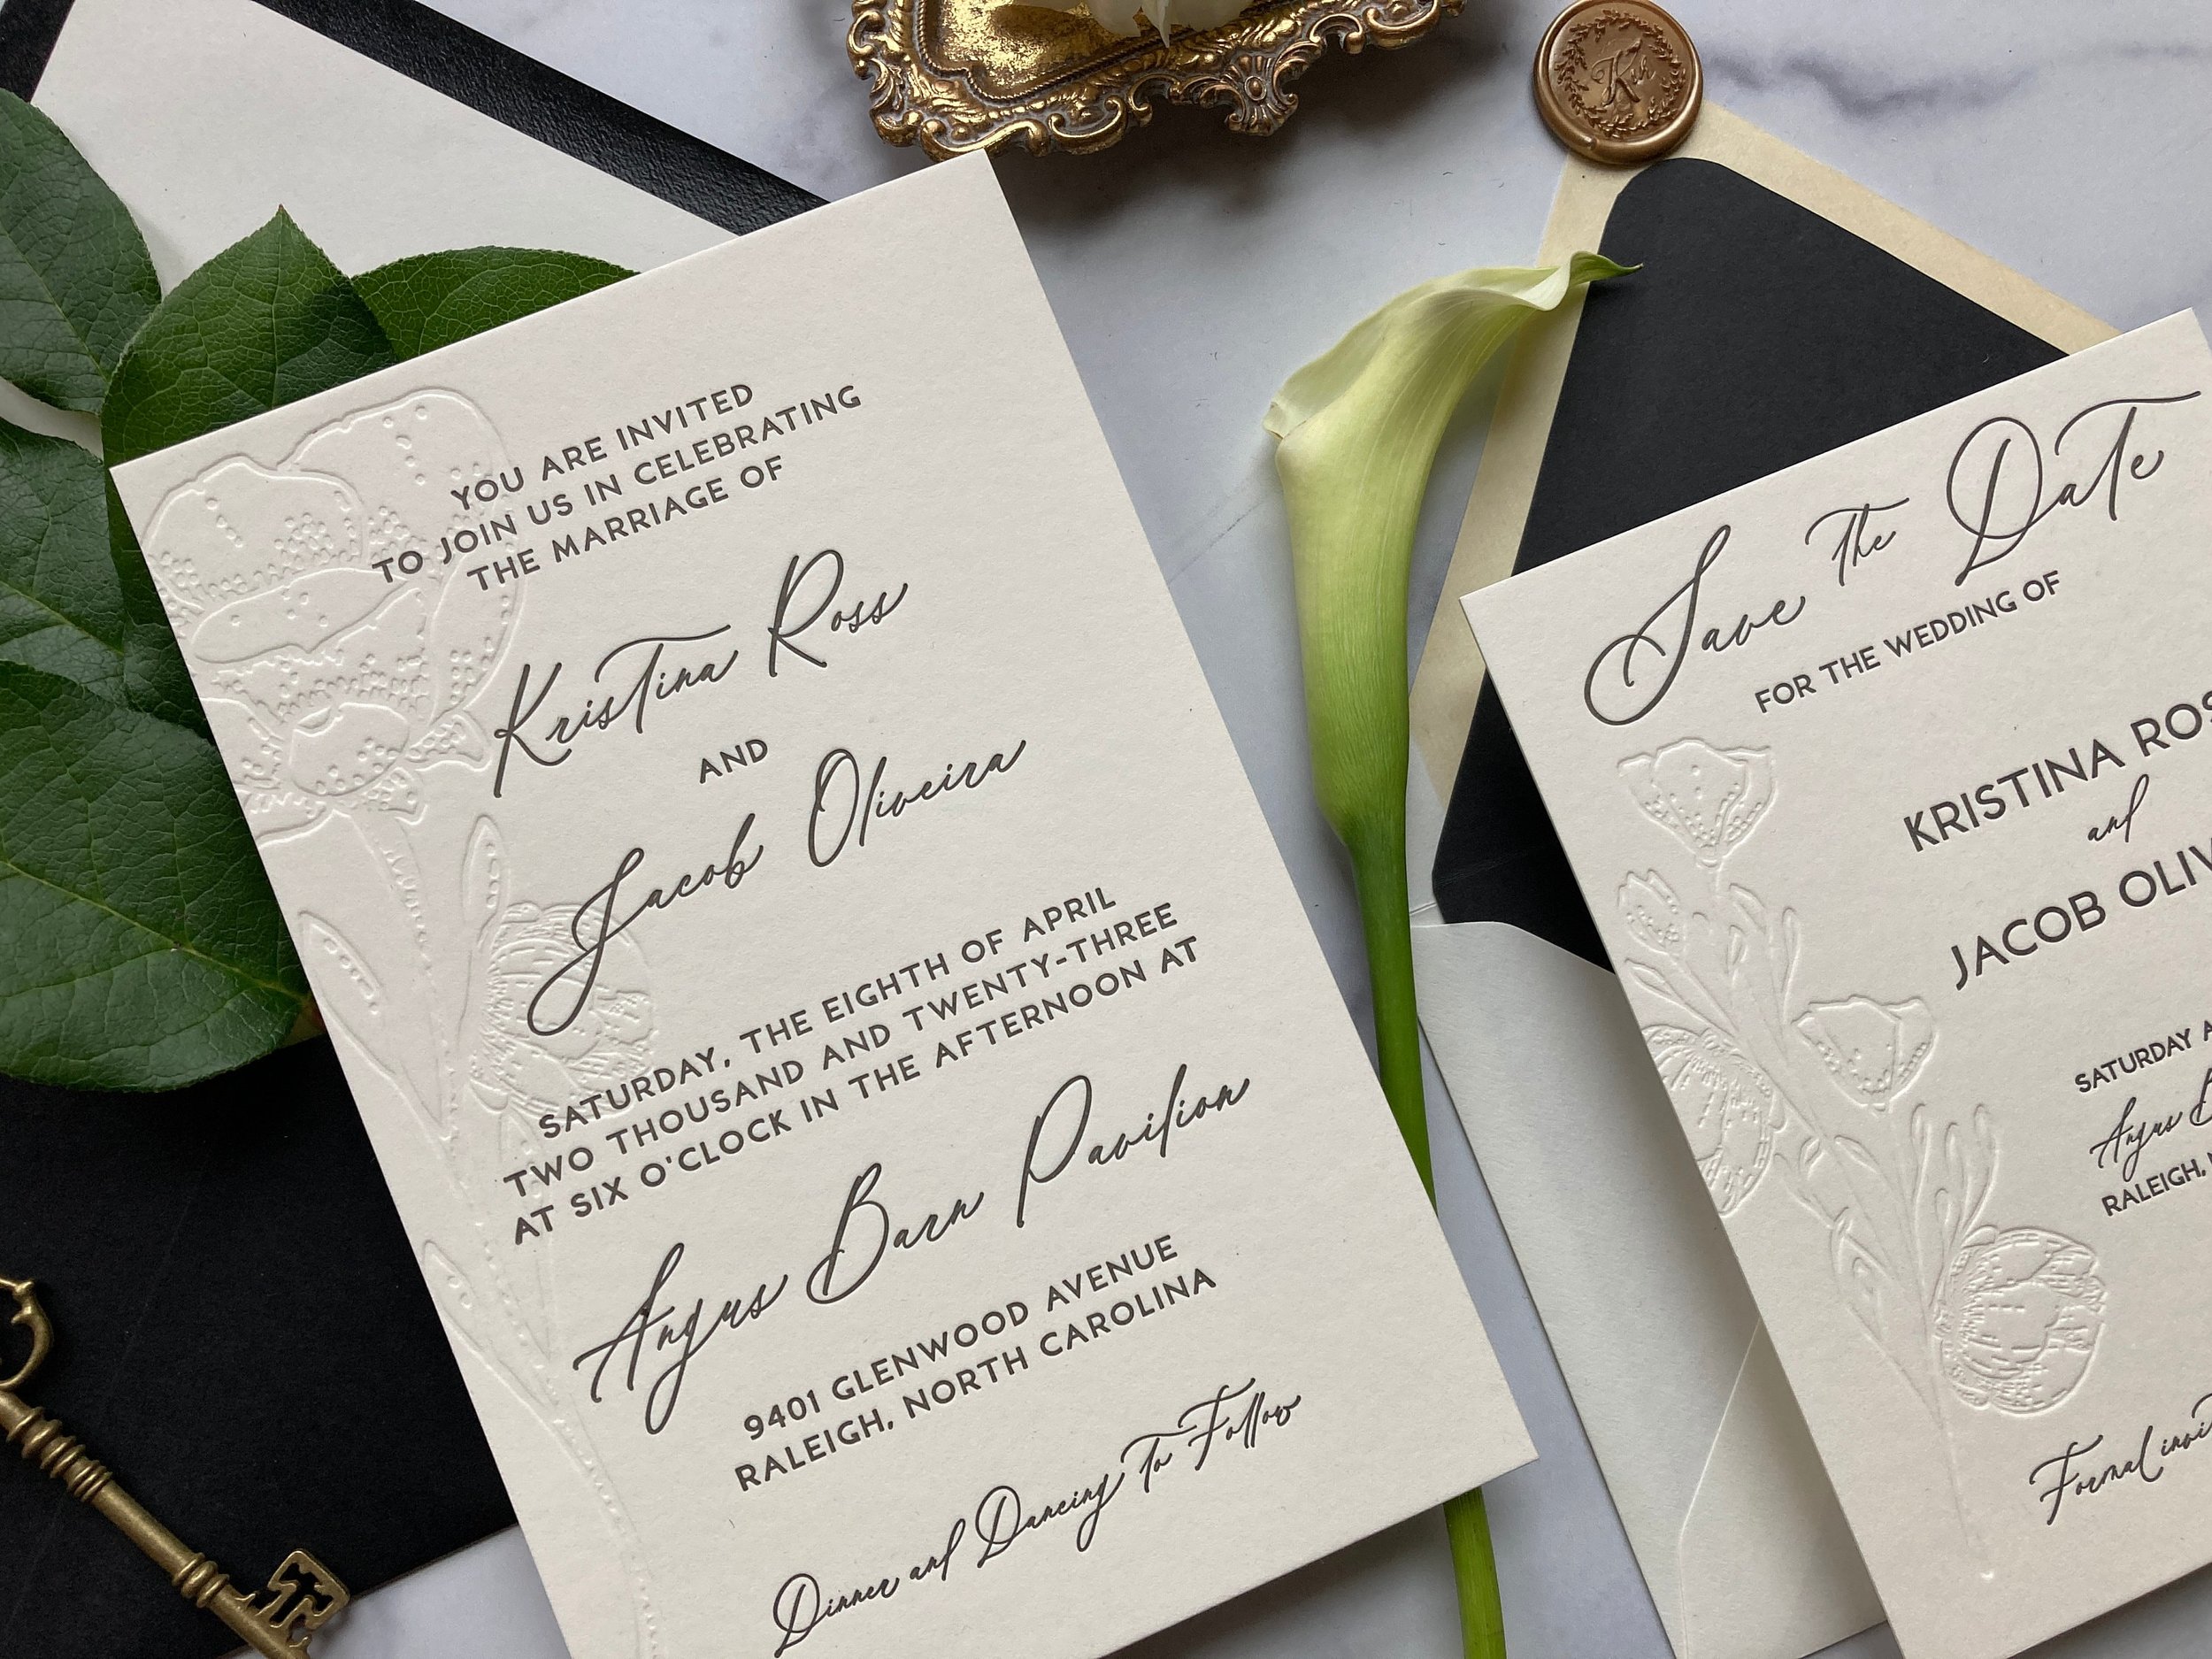 YOU ARE INVITED
TO JOIN US IN CELEBRATING
THE MARRIAGE OF
Kristina Ross
AND
Jacob Oliveira
SATURDAY, THE EIGHTH OF APRIL
TWO THOUSAND AND TWENTY-THREE
AT SIX O'CLOCK IN THE AFTERNOON AT
Angus Barn Pavilion
9401 GLENWOOD AVENUE
RALEIGH, NORTH CAROLINA
Dinner and Dancing To Follow
Save the Date
FOR THE WEDDING OF
KRISTINA ROS
and
JACOB OLIV
SATURDAY A
Angus B
RALEIGH, N
Formal invit